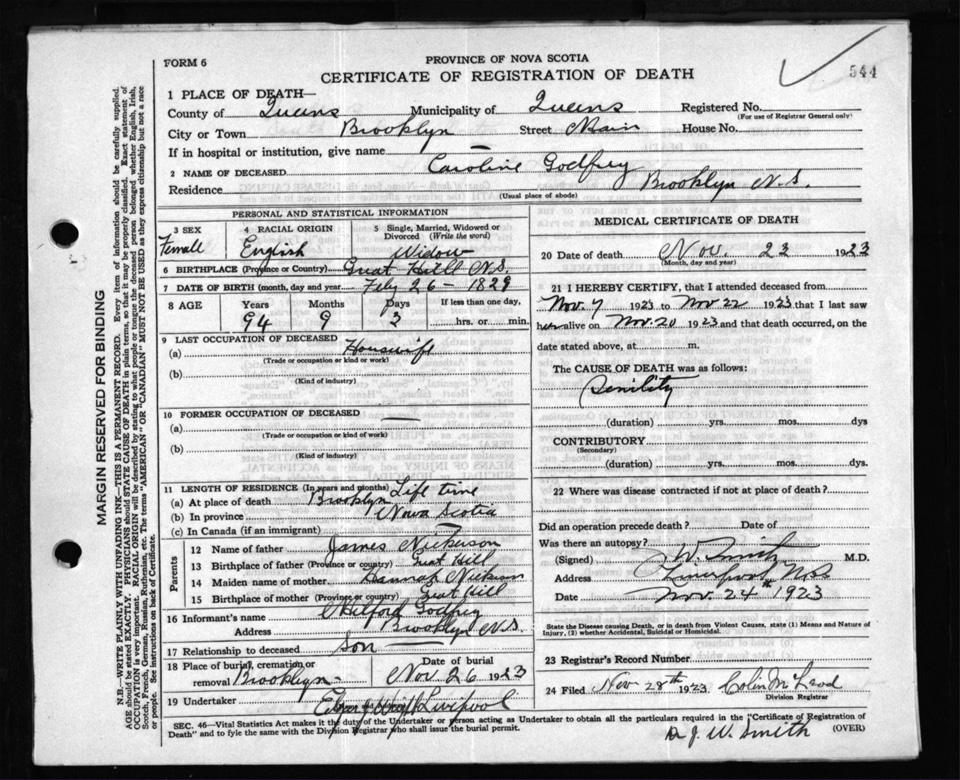 FORM 6
PROVINCE OF NOVA SCOTIA
CERTIFICATE OF REGISTRATION OF DEATH
544
1 PLACE OF DEATH—
County of Queens Municipality of Queens Registered No.
(For use of Registrar General only)
City or Town Brooklyn Street Main House No.
If in hospital or institution, give name —
2 NAME OF DECEASED Caroline Godfrey
Residence Brooklyn N.S.
(Usual place of abode)
PERSONAL AND STATISTICAL INFORMATION
3 SEX 4 RACIAL ORIGIN 5 Single, Married, Widowed or Divorced (Write the word)
Female English Widow
6 BIRTHPLACE (Province or Country) Great Hill N.S.
7 DATE OF BIRTH (month, day and year) Feby 26 - 1829
8 AGE Years Months Days If less than one day,
94 9 3 hrs. or min.
9 LAST OCCUPATION OF DECEASED
(a) Housewife
(Trade or occupation or kind of work)
(b)
(Kind of industry)
10 FORMER OCCUPATION OF DECEASED
(a) —
(Trade or occupation or kind of work)
(b)
(Kind of industry)
11 LENGTH OF RESIDENCE (In years and months)
(a) At place of death Brooklyn Life time
(b) In province Nova Scotia
(c) In Canada (if an immigrant) —
Parents
12 Name of father James Nickerson
13 Birthplace of father (Province or country) Great Hill
14 Maiden name of mother Hannah
15 Birthplace of mother (Province or country) Great Hill
16 Informant's name Milford Godfrey
Address Brooklyn N.S.
17 Relationship to deceased Son
18 Place of burial, cremation or removal Brooklyn Date of burial Nov 26 1923
19 Undertaker Liverpool
MEDICAL CERTIFICATE OF DEATH
20 Date of death Nov. 23 1923
(Month, day and year)
21 I HEREBY CERTIFY, that I attended deceased from
Nov. 7 1923 to Nov. 22 1923 that I last saw
her alive on Nov. 20 1923 and that death occurred, on the
date stated above, at m.
The CAUSE OF DEATH was as follows:
Senility
(duration) yrs. mos. dys
CONTRIBUTORY
(Secondary)
(duration) yrs. mos. dys.
22 Where was disease contracted if not at place of death?
Did an operation precede death? Date of
Was there an autopsy?
(Signed) J. W. Smith M.D.
Address Liverpool N.S.
Date Nov. 24th 1923
State the Disease causing Death, or in death from Violent Causes, state (1) Means and Nature of Injury, (2) whether Accidental, Suicidal or Homicidal.
23 Registrar's Record Number
24 Filed Nov 28th 1923 Colin McLeod
Division Registrar
SEC. 46—Vital Statistics Act makes it the duty of the Undertaker or person acting as Undertaker to obtain all the particulars required in the "Certificate of Registration of
Death" and to fyle the same with the Division Registrar who shall issue the burial permit.
(OVER)
Dr J. W. Smith
MARGIN RESERVED FOR BINDING
N.B.—WRITE PLAINLY WITH UNFADING INK—THIS IS A PERMANENT RECORD. Every item of information should be carefully supplied.
AGE should be stated EXACTLY. PHYSICIANS should STATE CAUSE OF DEATH in plain terms, so that it may be properly classified. Exact statement of
OCCUPATION is very important. RACIAL ORIGIN will be described by stating to what people or tongue the deceased person belonged whether English, Irish,
Scotch, French, German, Russian, Ruthenian, etc. The terms "AMERICAN" OR "CANADIAN" MUST NOT BE USED as they express citizenship but not a race
or people. See instructions on back of Certificate.